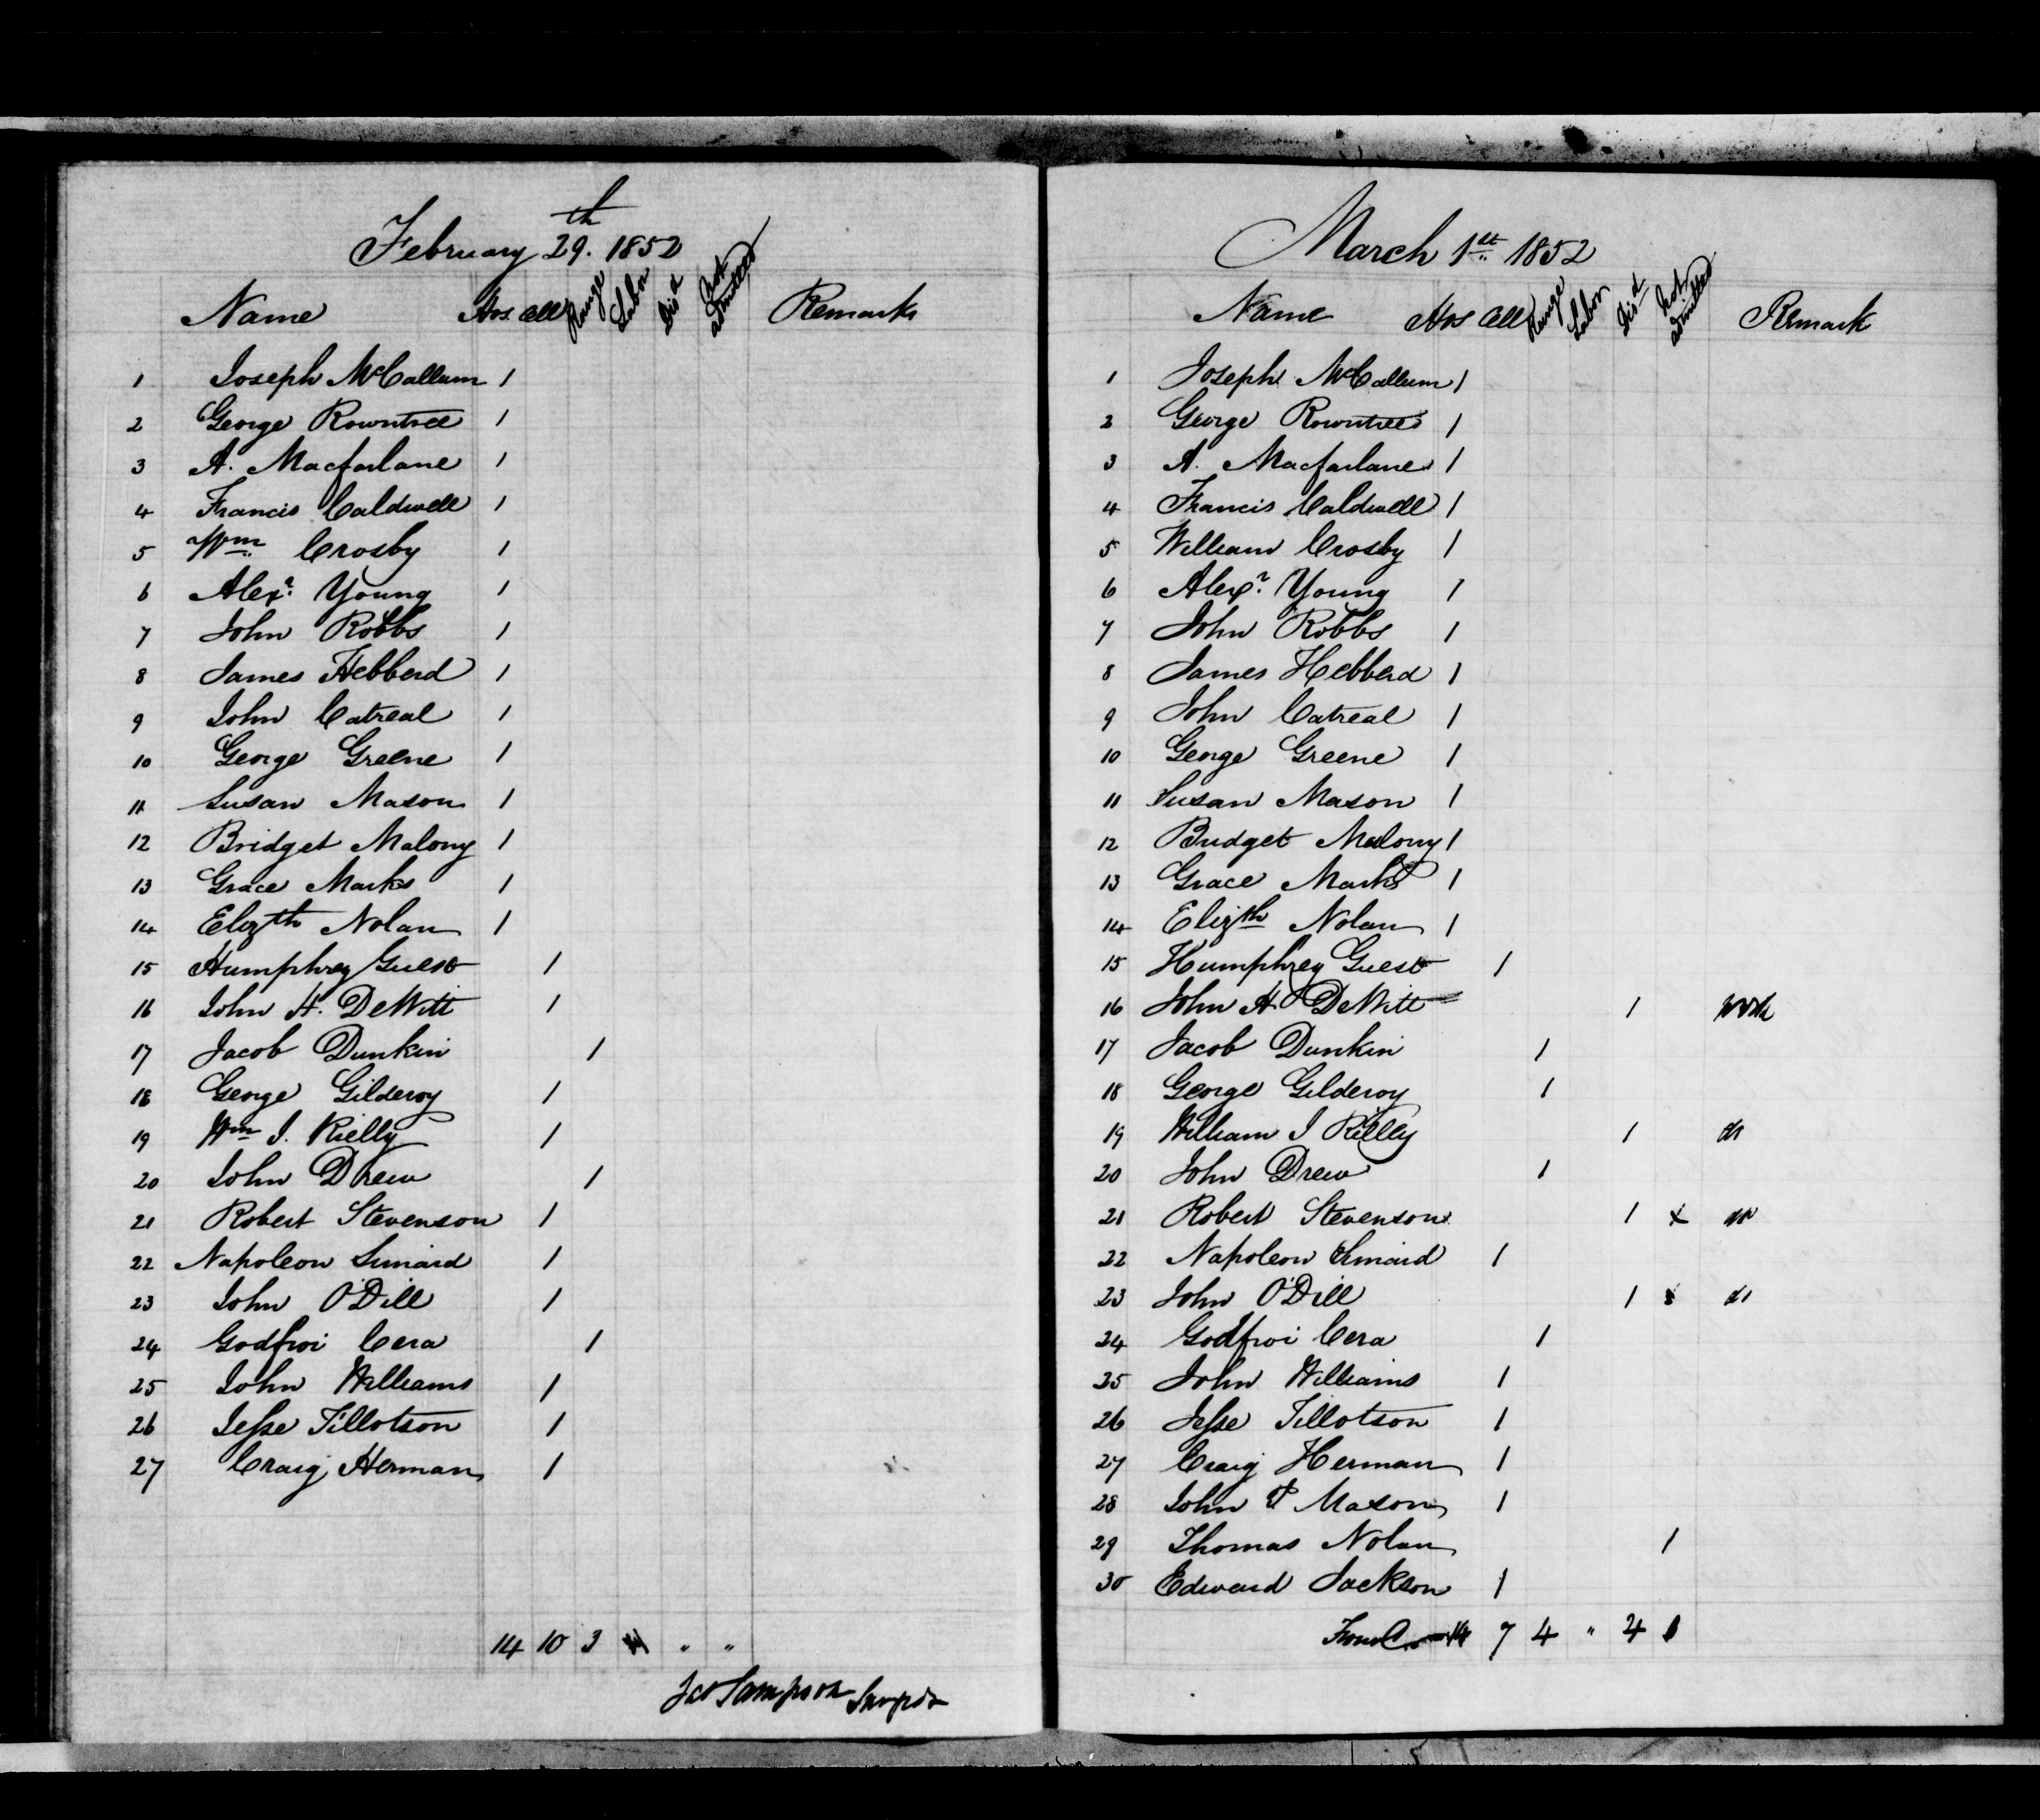 February 29.th 1852
Name Hos. Cell Range Labor Disd Not admitted Remarks
1 Joseph McCallum 1
2 George Rowntree 1
3 A. Macfarlane 1
4 Francis Caldwell 1
5 Wm Crosby 1
6 Alexr. Young 1
7 John Robbs 1
8 James Hebberd 1
9 John Catreal 1
10 George Greene 1
11 Susan Mason 1
12 Bridget Malony 1
13 Grace Marks 1
14 Elizth Nolan 1
15 Humphrey Guest 1
16 John H. DeWitt 1
17 Jacob Dunkin 1
18 George Gilderoy 1
19 Wm J. Rielly 1
20 John Drew 1
21 Robert Stevenson 1
22 Napoleon Simard 1
23 John O'Dill 1
24 Godfroi Cera 1
25 John Williams 1
26 Jesse Tillotson 1
27 Craig Herman 1
14 10 3 " "
Sampson
March 1st 1852
Name Hos Cell Range Labor Disd Not admitted Remark
1 Joseph McCallum 1
2 George Rowntree 1
3 A. Macfarlane 1
4 Francis Caldwell 1
5 William Crosby 1
6 Alexr. Young 1
7 John Robbs 1
8 James Hebberd 1
9 John Catreal 1
10 George Greene 1
11 Susan Mason 1
12 Bridget Malony 1
13 Grace Marks 1
14 Elizth Nolan 1
15 Humphrey Guest 1
16 John H. DeWitt 1 work
17 Jacob Dunkin 1
18 George Gilderoy 1
19 William J Rielly 1 do
20 John Drew 1
21 Robert Stevenson 1 x do
22 Napoleon Simard 1
23 John O'Dill 1 do
24 Godfroi Cera 1
25 John Williams 1
26 Jesse Tillotson 1
27 Craig Herman 1
28 John Mason 1
29 Thomas Nolan 1
30 Edward Jackson 1
14 7 4 " 4 1